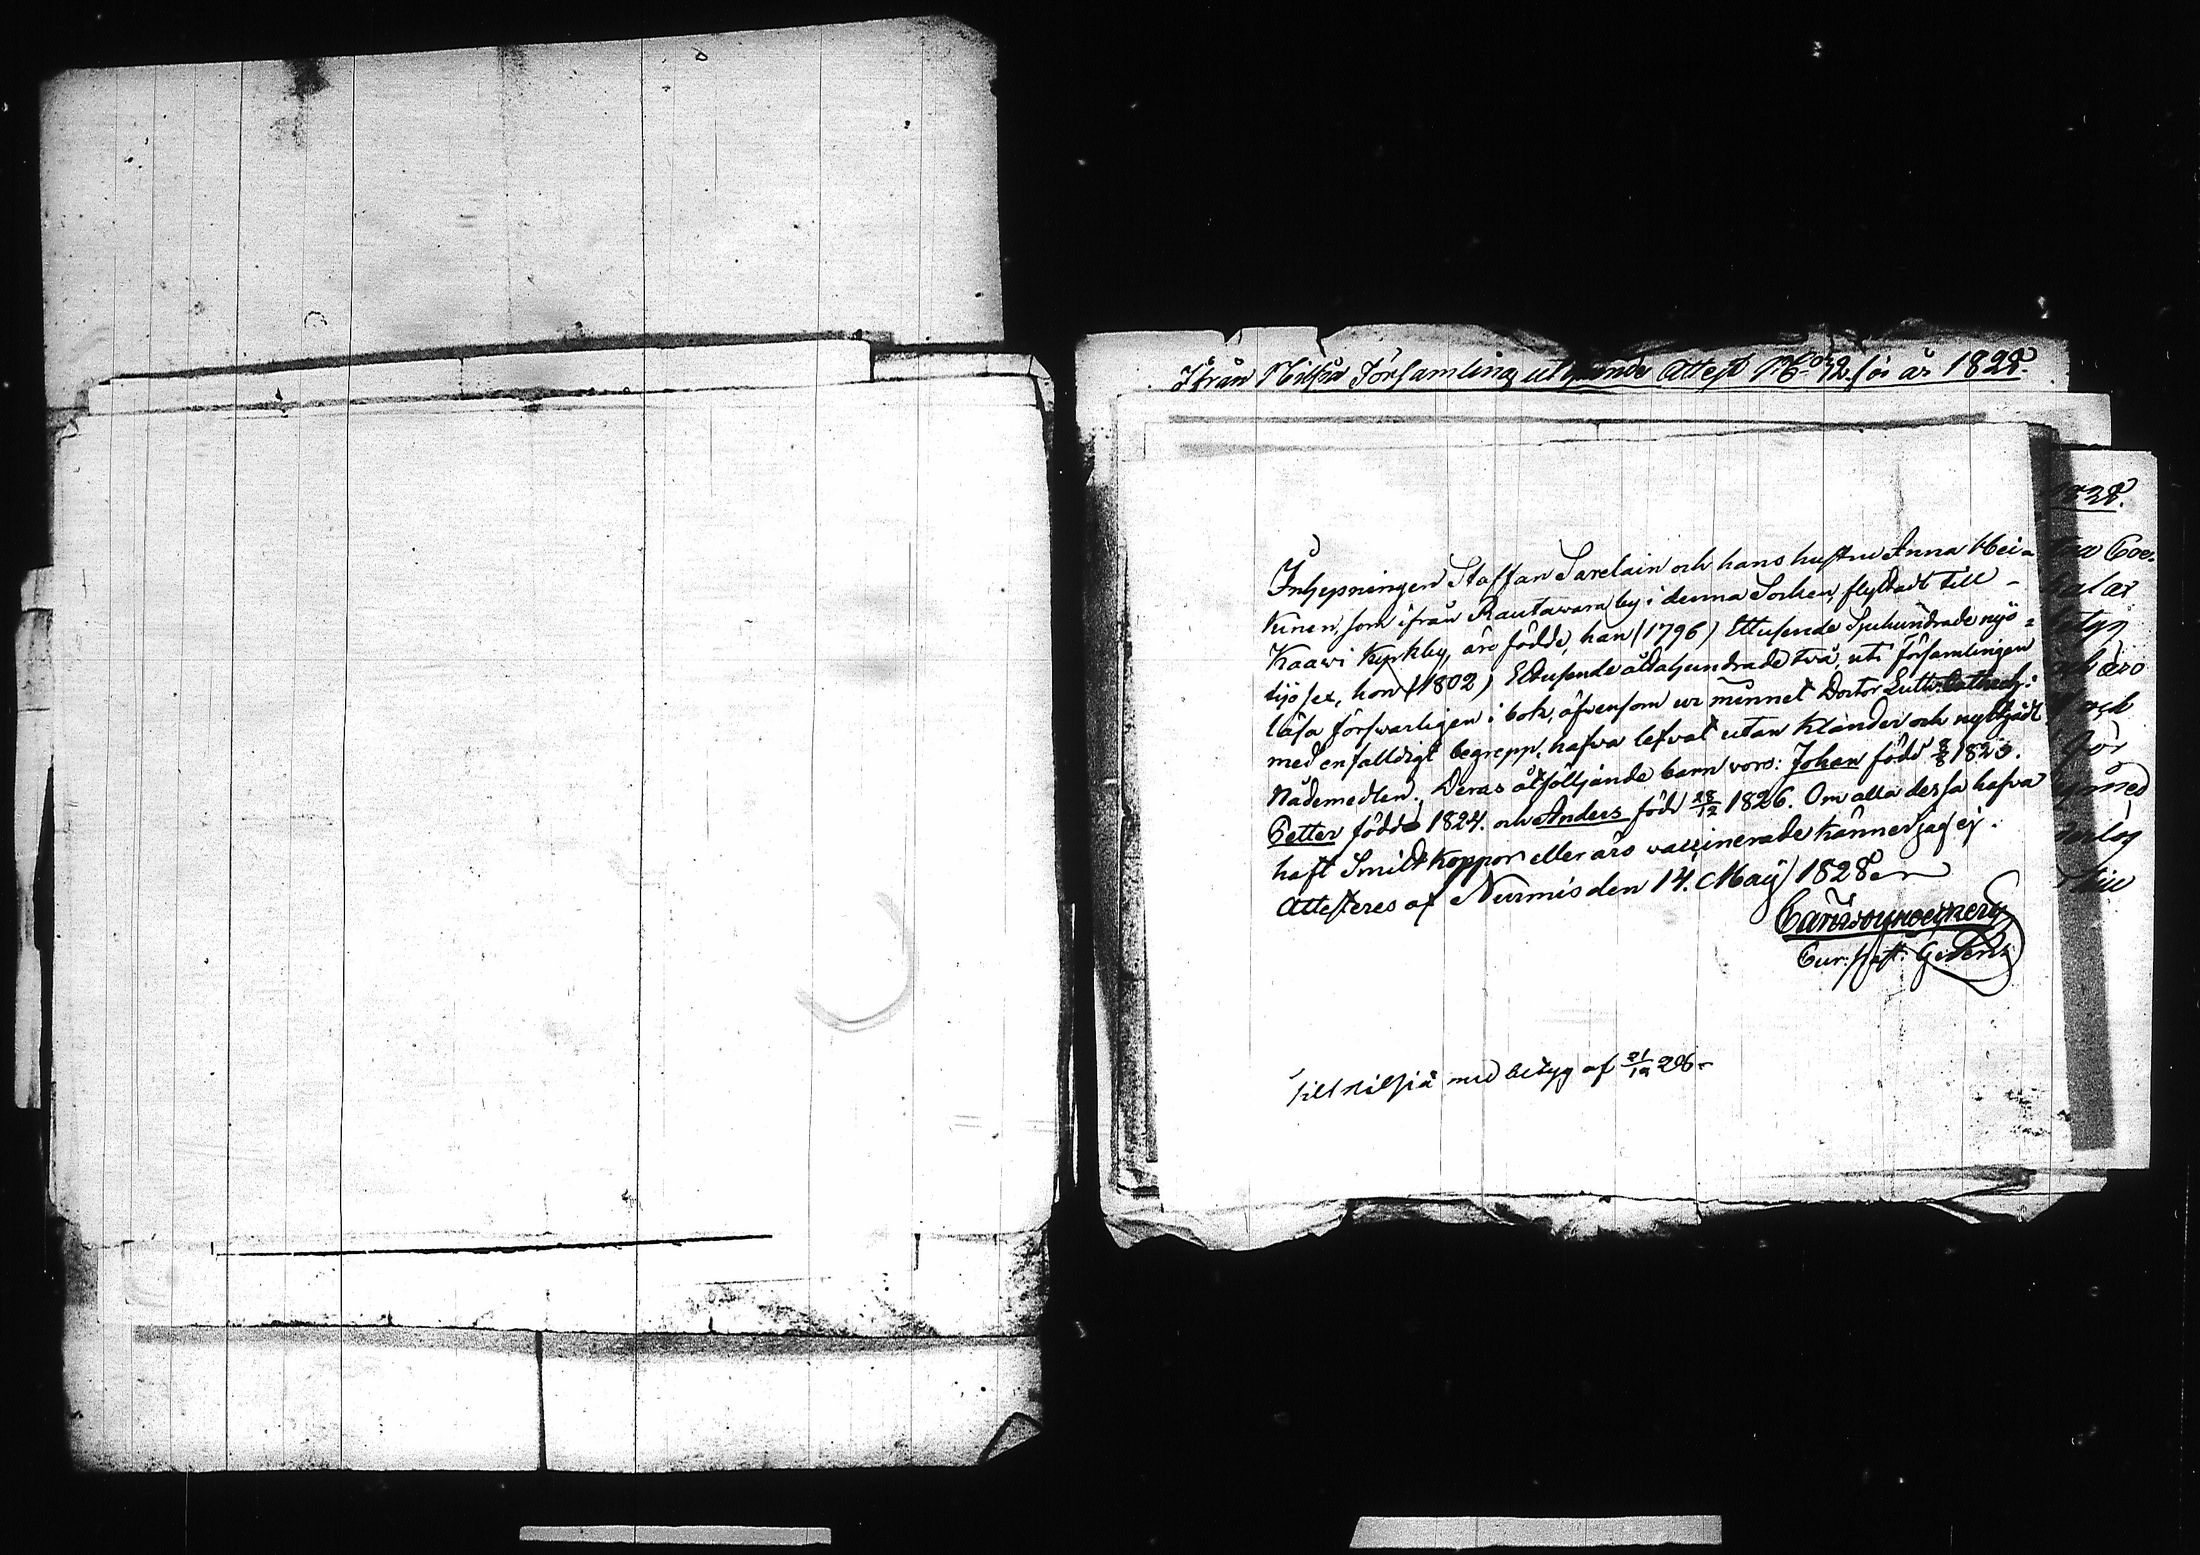 Ifrån Nilsiä Församling utgående Attest No 12. för år 1828.
1828.
Inhysningen Staffan Sarelain och hans hustru Anna Hei-
kinen, som ifrån Rautawara by i denna Socken, flyttadt till
Kaawi Kyrkby, äro födde, han (1796) Ettusende Sjuhundrade nyö-
tijo sex, hon (1802) Ettusende åttahundrade två, uti församlingen
läsa försvarligen i bok, äfvensom ur minnet Doctor Luth: Cathech:
med enfalldigt begrepp, hafva lefvat utan klander och nyttjadt
Nådemedlen. Deras åtföljande barn voro: Johan född 8/8 1823.
Petter född 1824. och Anders född 28/12 1826. Om alla dessa hafva
haft Smitkoppor eller äro vaccinerade känner jag ej.
Attesteres af Nurmis den 14. Maij 1828
Cur: past:
till Nilsiä med betyg af 21/12 26
och äro
för
med